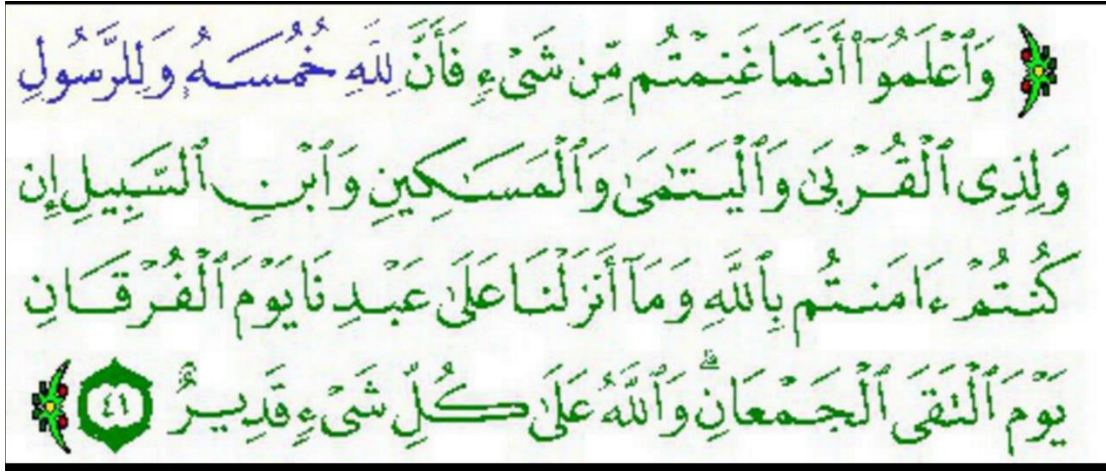 وَٱعْلَمُوٓا۟ أَنَّمَا غَنِمْتُم مِّن شَىْءٍ فَأَنَّ لِلَّهِ خُمُسَهُۥ وَلِلرَّسُولِ
وَلِذِى ٱلْقُرْبَىٰ وَٱلْيَتَـٰمَىٰ وَٱلْمَسَـٰكِينِ وَٱبْنِ ٱلسَّبِيلِ إِن
كُنتُمْ ءَامَنتُم بِٱللَّهِ وَمَآ أَنزَلْنَا عَلَىٰ عَبْدِنَا يَوْمَ ٱلْفُرْقَانِ
يَوْمَ ٱلْتَقَى ٱلْجَمْعَانِ ۗ وَٱللَّهُ عَلَىٰ كُلِّ شَىْءٍ قَدِيرٌ ٤١